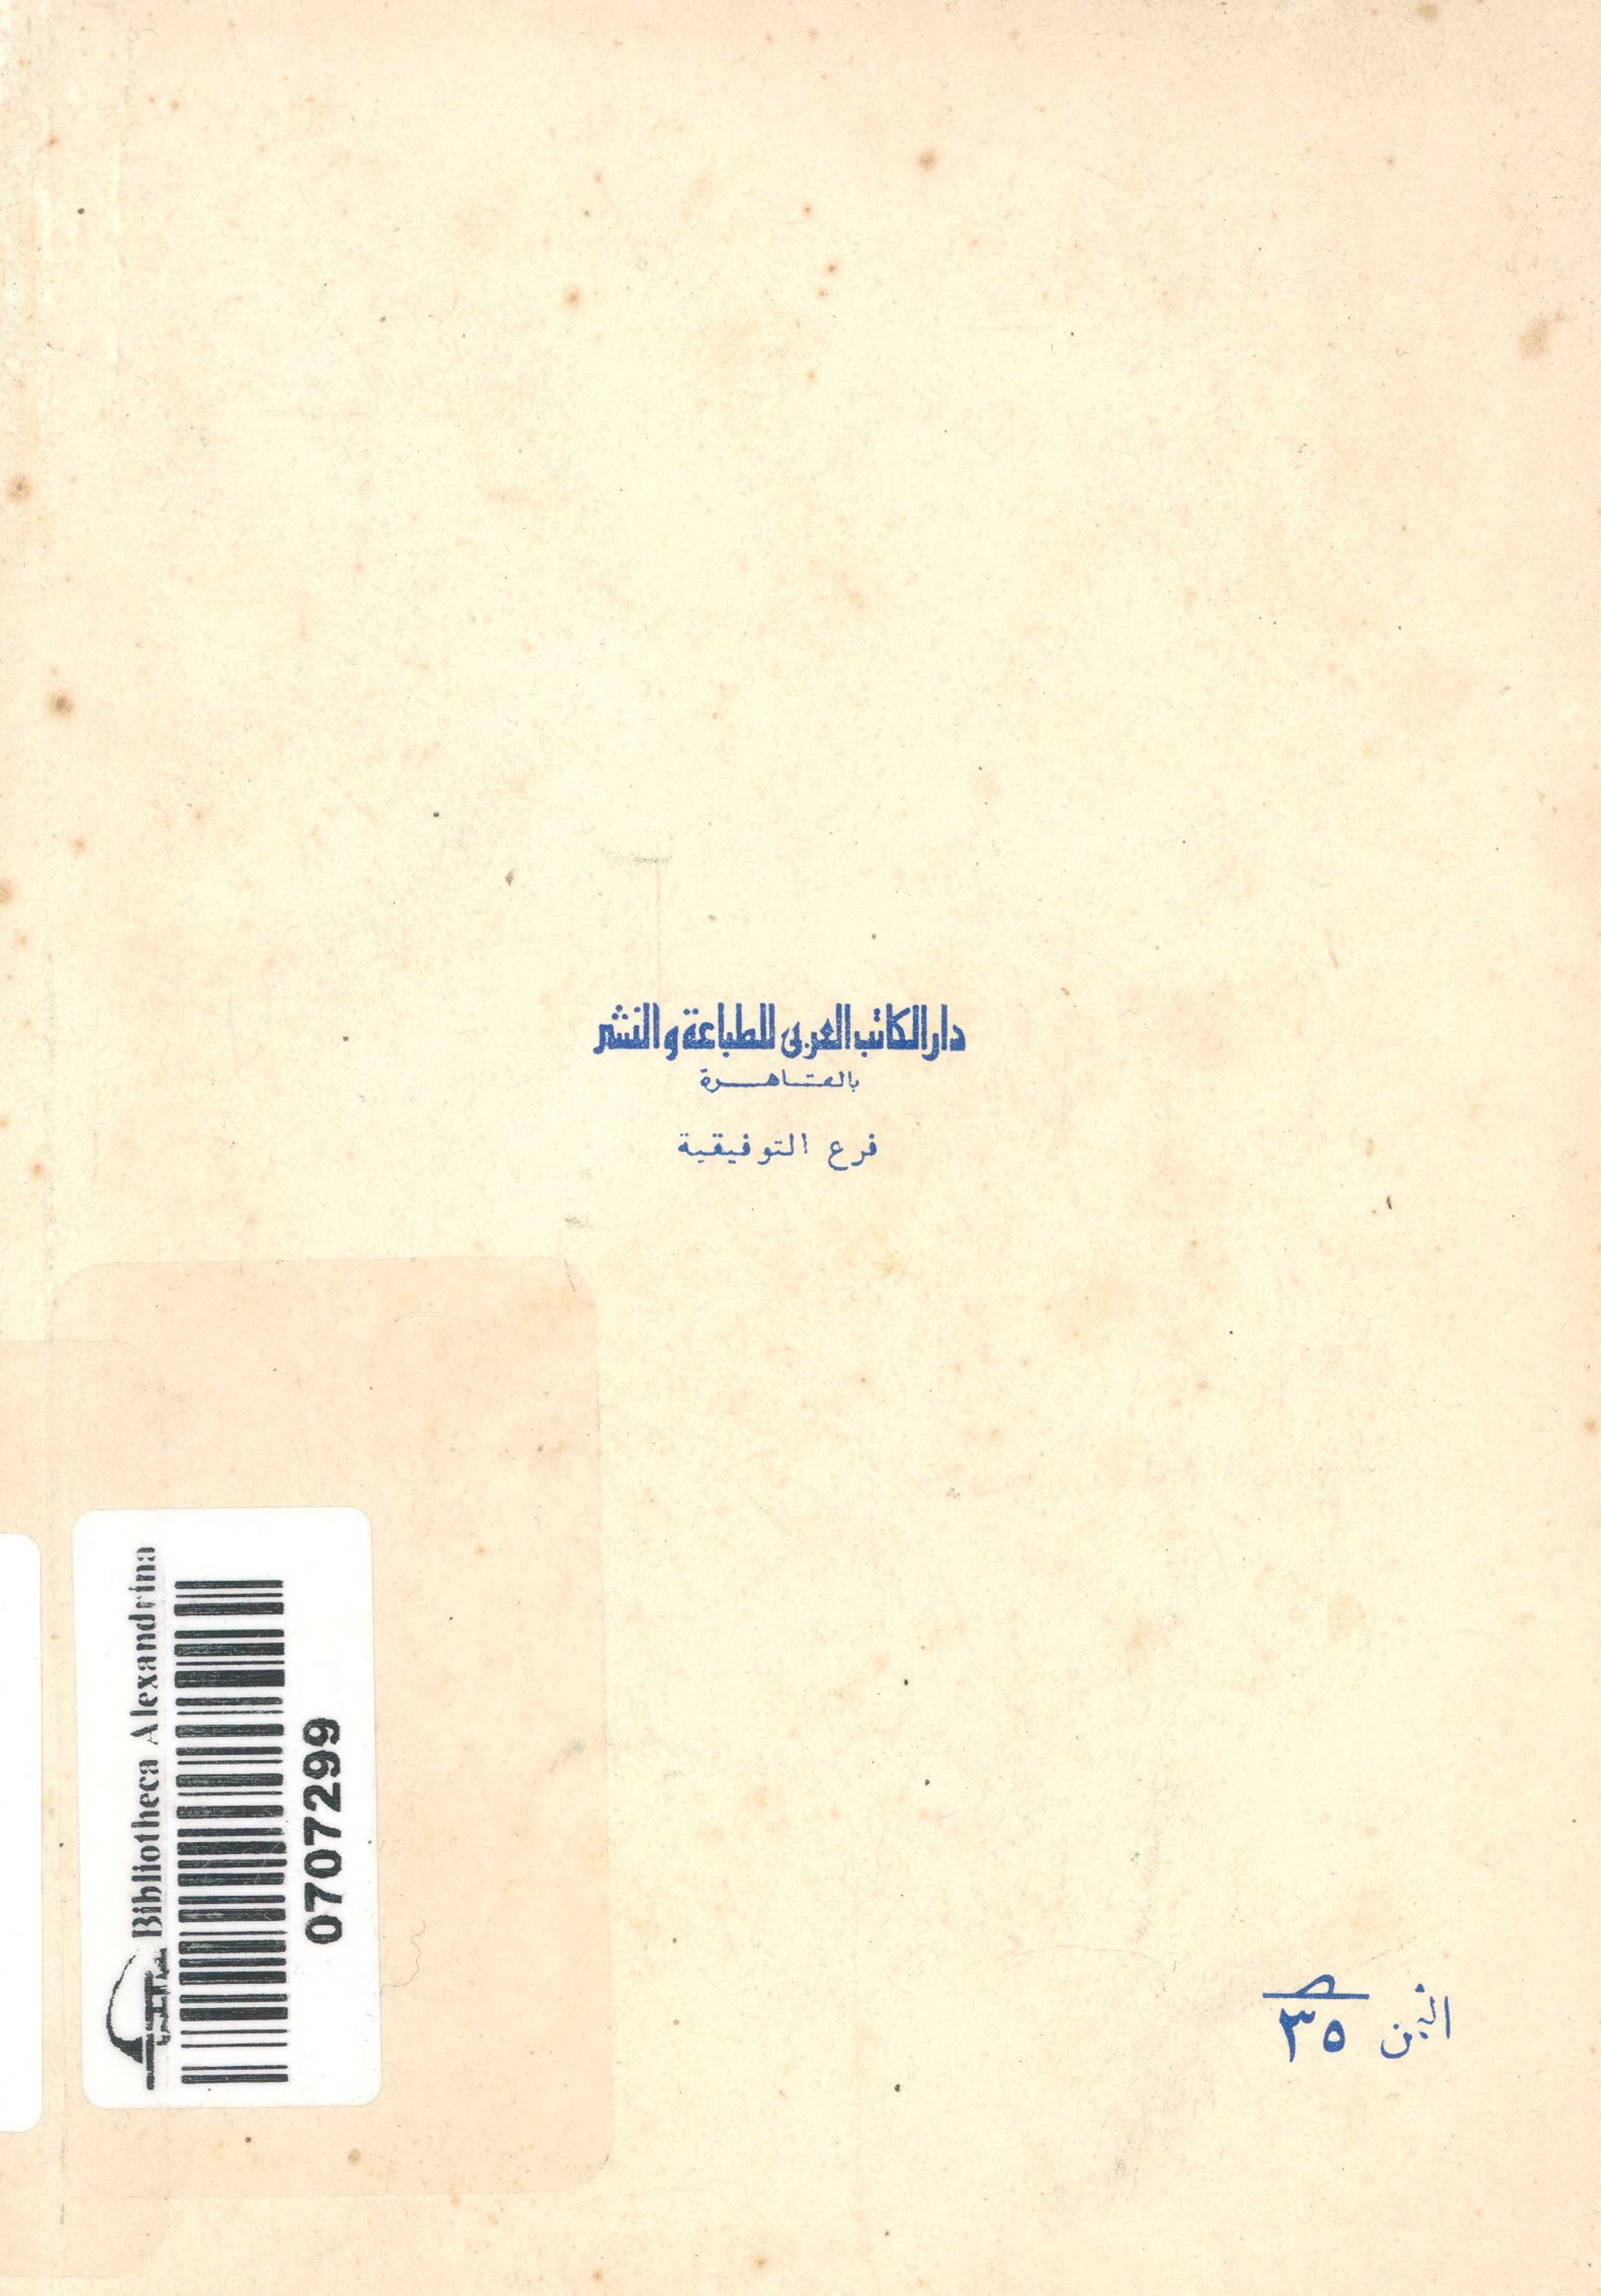 دار الكاتب العربى للطباعة والنشر
بالقاهرة
فرع التوفيقية
Bibliotheca Alexandrina
0707299
الثمن ٣٥